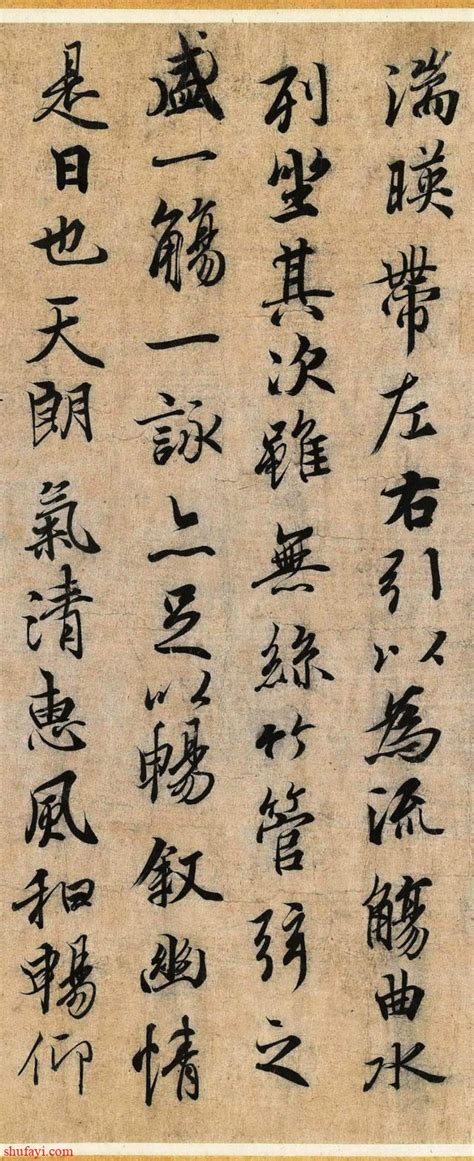 湍暎帶左右引以為流觴曲水
列坐其次雖無絲竹管弦之
盛一觴一詠亦足以暢叙幽情
是日也天朗氣清惠風和暢仰
shufayi.com